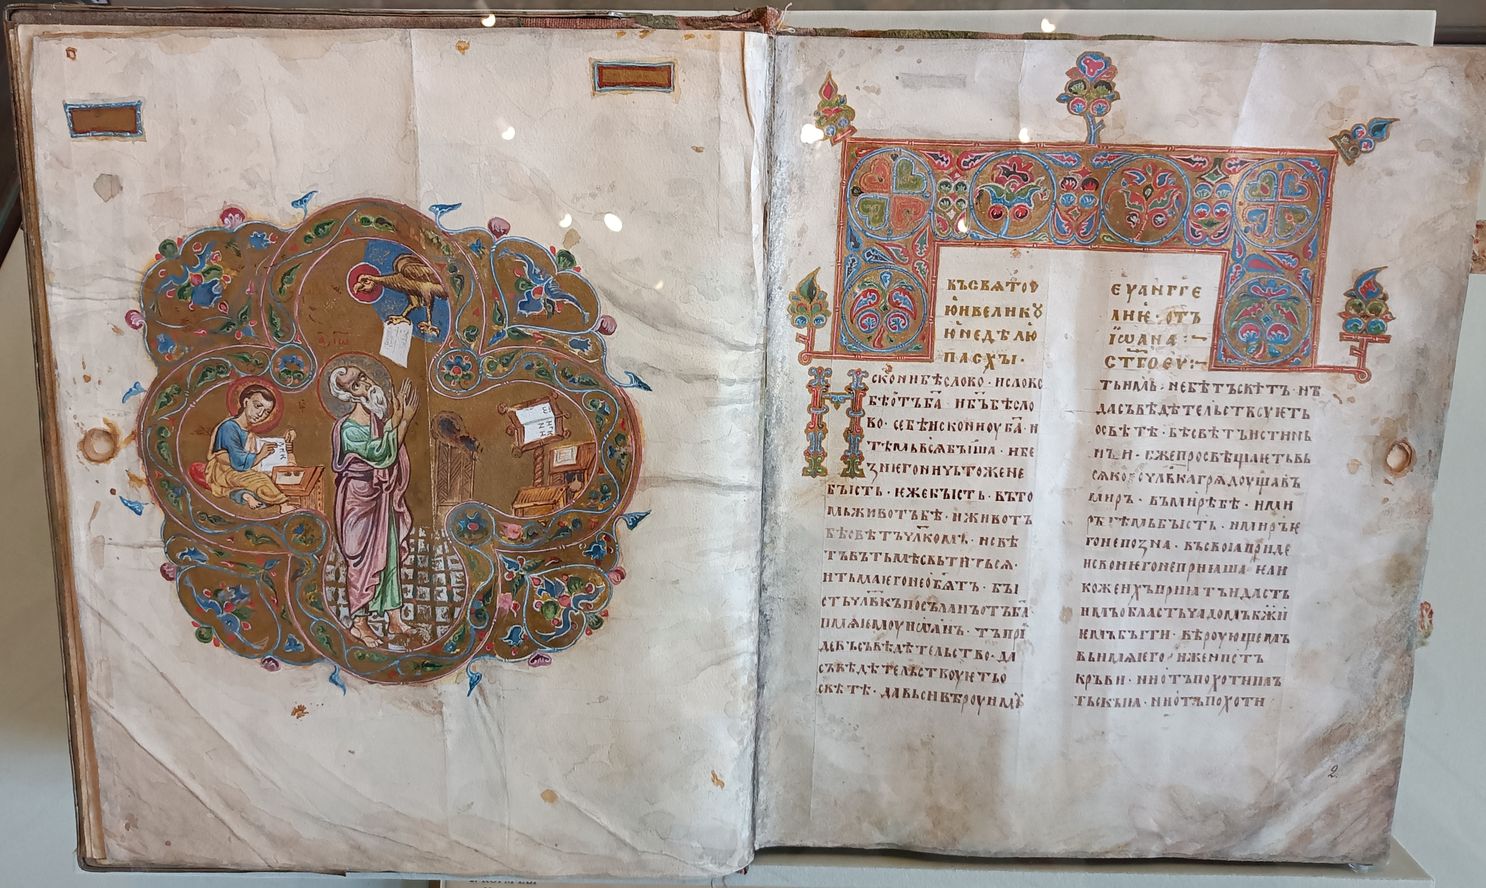 ВЪ СВѦТОУ
Ю И ВЕЛИКОУ
Ю НЕДѢЛЮ
ПАСХЪІ ·
ЕУАНГГЕ
ЛИѤ · ОТЪ
ІѠАНА :~
СТГО ЕУ :~
Искони бѣ слово · и слово
бѣ отъ ба̅ · и б̅ъ бѣ сло
во · се бѣ искони оу ба̅ · и
тѣмь вься бꙑша · и бе
з него ничьтоже не
бꙑсть · ѥже бꙑсть · въ то
мь животъ бѣ · и животъ
бѣ свѣтъ чл̅комъ · и свѣ
тъ въ тьмѣ свьтитьсѧ ·
и тьма ѥго не обѧтъ · бꙑ
сть чл̅вкъ посъланъ отъ ба̅
имѧ ѥмоу иѡанъ · тъ при
де въ съвѣдѣтельство · да
съвѣдѣтельствоуѥть о
свѣтѣ · да вьси вѣроу имѫ
ть имь · не бѣ тъ свѣтъ · нъ
да съвѣдѣтельствоуѥть
о свѣтѣ · бѣ свѣтъ истинь
нꙑи · иже просвѣщаѥть вь
сѧкого чл̅вка грѧдоуща въ
миръ · въ мирѣ бѣ · и ми
ръ тѣмь бꙑсть · и миръ ѥ
го не позна · въ своꙗ приде
и свои ѥго не приꙗша · ѥли
ко же ихъ приꙗтъ и дасть
имъ область чадомъ бж̅и
ѥмъ бꙑти · вѣроующемъ
въ имѧ ѥго · иже не отъ
кръви · ни отъ похоти пль
тьскꙑꙗ · ни отъ похоти ·
2